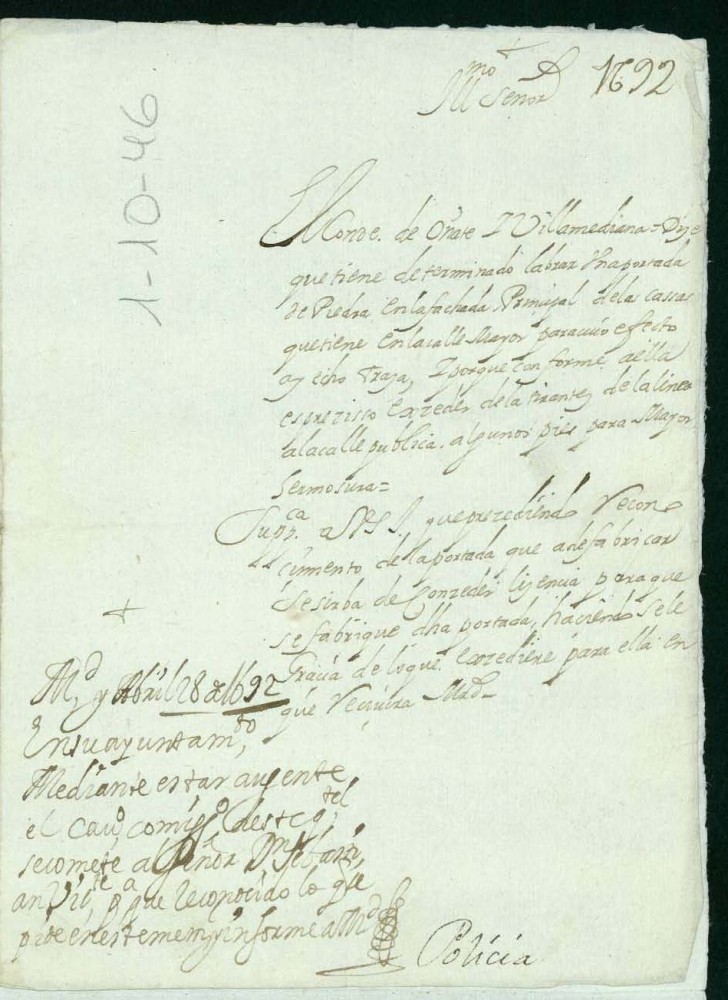 1692
Yllmo Señor
1-10-46
El Conde de Oñate I Villamediana = Dize
que tiene determinado labrar Una portada
de Piedra En la fachada Prinzipal de las cassas
que tiene En la calle Mayor para cuio efecto
ay echo Traza, I porque conforme a ella
es prezisso Exzeder de la tirantez de la linea
a la calle publica algunos pies para Mayor
hermosura=
Supca a VSI que prezediendo Recono
cimiento de la portada que a de fabricar
se sirba de Conzeder lizencia para que
se fabrique dha portada, haciendosele
Gracia de lo que Exzediere para ella en
que Reciuira Mrd
Md y Abril 28 de 1692
En su ayuntamto
Mediante estar ausente
el cauo comisso deste qtel
se comete al Señor Dn
para que Reconocido lo que
pide en este mem informe a Md
Policia